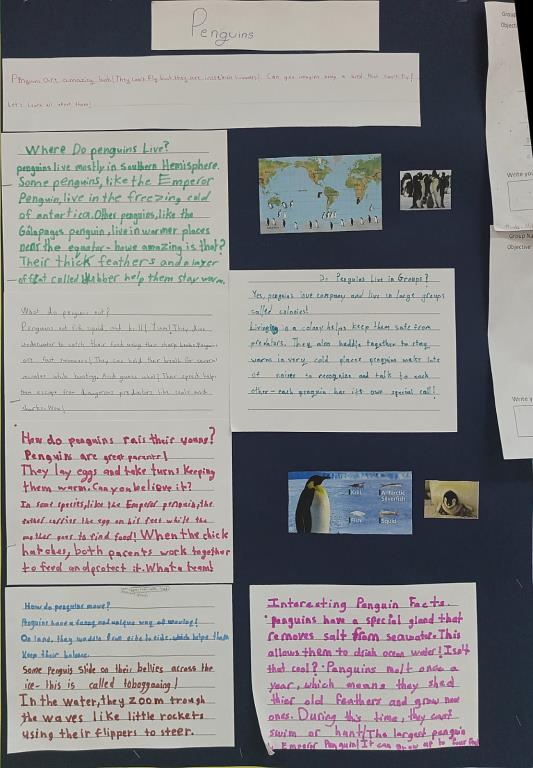 Penguins
Penguins are amazing birds! They can't fly but they are incredible swimmers! Can you imagine being a bird that can't fly?
Let's learn all about them!
Where Do penguins Live?
penguins live mostly in Southern Hemisphere.
Some penguins, like the Emperor
Penguin, live in the freezing cold
of antartica. Other penguins, like the
Galápagos penguin, live in warmer places
near the equator - howe amazing is that?
Their thick feathers and a layer
of fat called blubber help them stay warm.
What do penguins eat?
Penguins eat fish, squid, and krill! Yum! They dive
underwater to catch their food using their sharp beaks. Penguins
are fast swimmers! They can hold their breath for several
minutes while hunting. And guess what? Their speed helps
them escape from dangerous predators like seals and
sharks. Wow!
How do penguins rais their young?
Penguins are great parents!
They lay eggs and take turns keeping
them warm. Can you believe it?
In some species, like the Emperor penguin, the
father carries the egg on his feet while the
mother goes to find food! When the chick
hatches, both parents work together
to feed and protect it. What a team!
How do penguins move?
Penguins have a funny and unique way of moving!
On land, they waddle from side to side, which helps them
keep their balance.
Some penguis slide on their bellies across the
ice - this is called tobogganing!
In the water, they zoom trough
the waves like little rockets
using their flippers to steer.
Do Penguins Live in Groups?
Yes, penguins love company and live in large groups
called colonies!
Living in a colony helps keep them safe from
predators. They also huddle together to stay
warm in very cold places penguins make lots
of noises to recognize and talk to each
other - each penguin has its own special call!
Krill
Antarctic
Silverfish
Fish
Squid
Interesting Penguin Facts.
penguins have a special gland that
removes salt from seawater. This
allows them to drink ocean water! Isn't
that cool? Penguins molt once a
year, which means they shed
thier old feathers and grow new
ones. During this time, they can't
swim or hunt! The largest penguin
is Emperor Penguin! It can grow up to four feet
Group
Objecti
Write you
Group Na
Objective
Write y